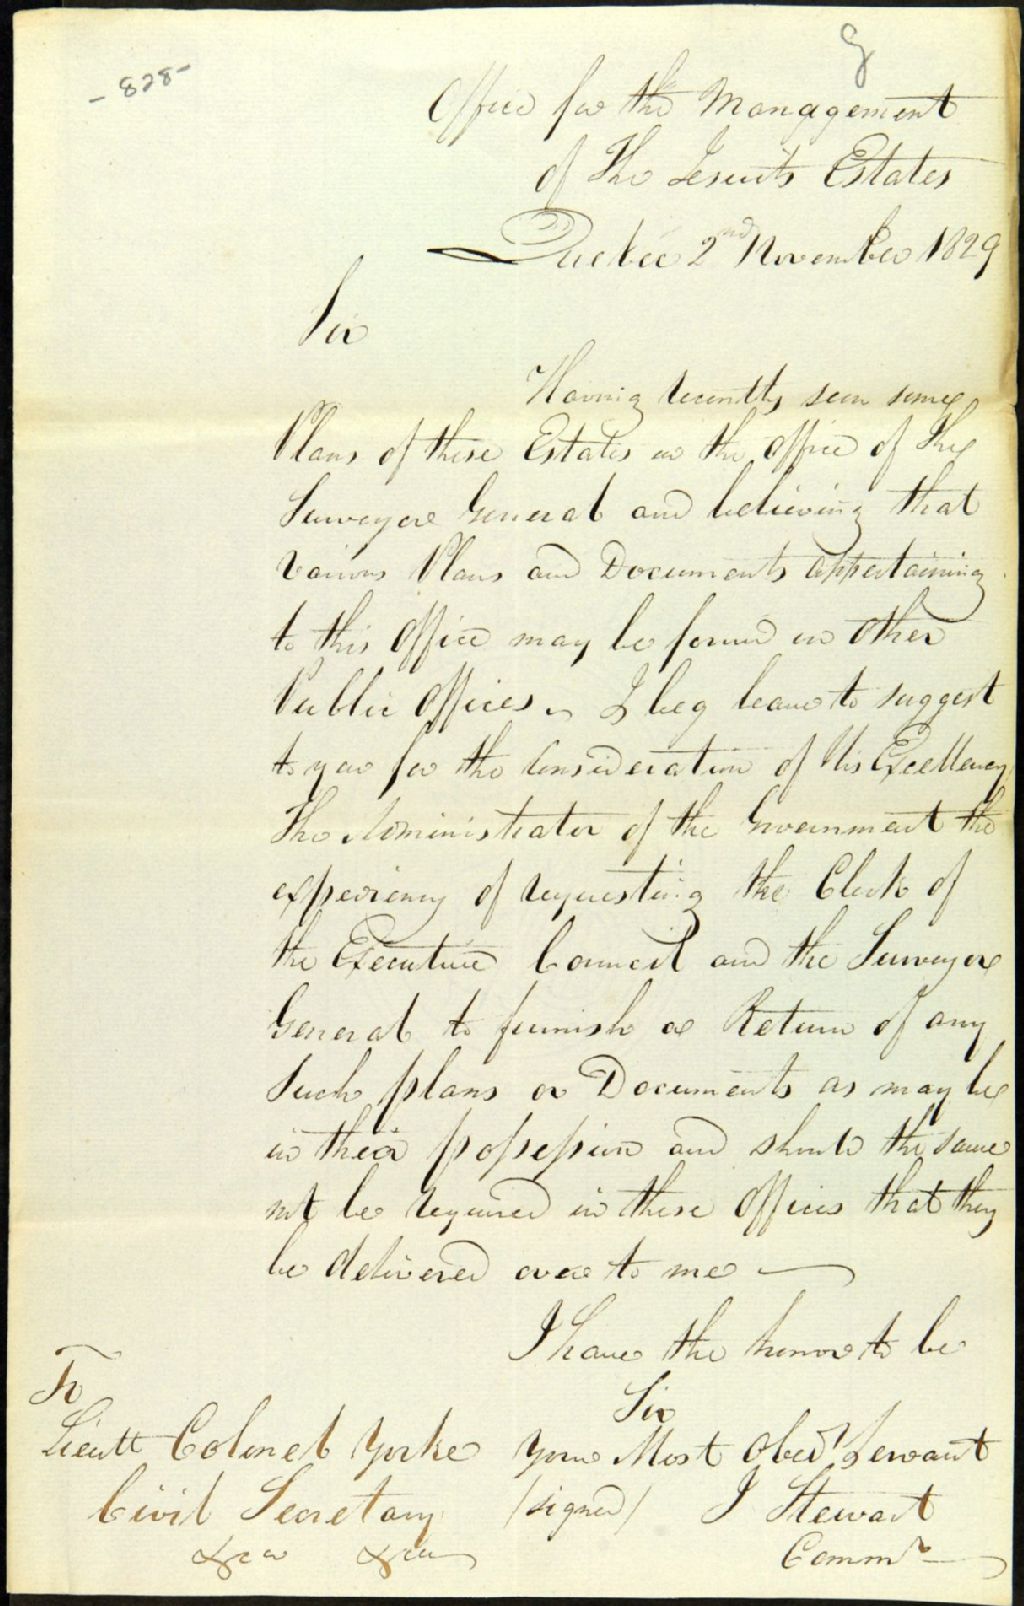 - 828 -
Office for the Management
of The Jesuits Estates
Quebec 2nd November 1829
Sir
Having recently seen some
Plans of these Estates in the office of The
Surveyor General and believing that
various Plans and Documents appertaining
to this Office may be found in other
Public Offices. I beg leave to suggest
to you for the Consideration of His Excellency
The Administrator of the Government the
expediency of requesting the Clerk of
the Executive Council and the Surveyor
General to furnish a Return of any
Such plans or Documents as may be
in their possession and should the same
not be required in these Offices that they
be delivered over to me
I have the honor to be
Sir
Your Most Obedt Servant
(signed) J Stewart
Commr
To
Lieutt Colonel Yorke
Civil Secretary
&ca &ca